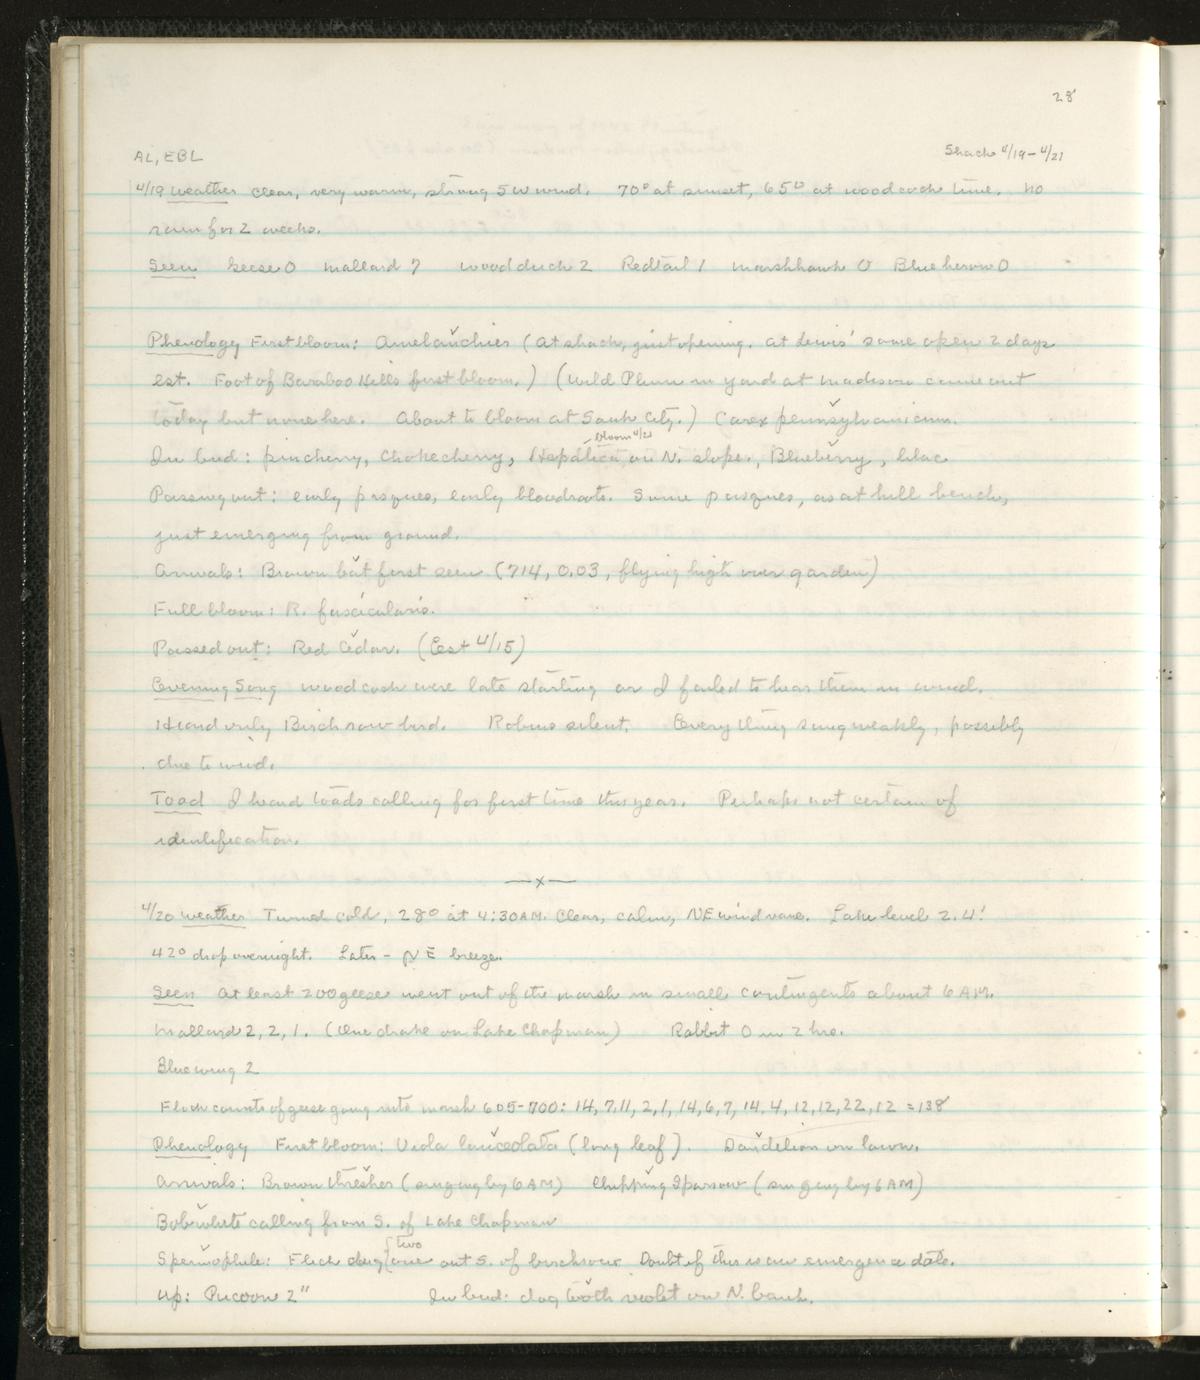 28
AL, EBL Shack 4/19–4/21
4/19 Weather clear, very warm, strong SW wind. 70° at sunset, 65° at woodcock time. No
rain for 2 weeks.
Seen Geese 0 Mallard 7 Woodduck 2 Redtail 1 Marshhawk 0 Blue heron 0
Phenology First bloom: Amelanchier (At shack, just opening. At Lewis' some open 2 days
est. Foot of Baraboo Hills first bloom.) (Wild Plum in yard at Madison came out
today but none here. About to bloom at Sauk City.) Carex pennsylvanicum.
In bud: pincherry, Chokecherry, Hepatica on N. slope., Blueberry, lilac
bloom 4/21
Passing out: early pasques, early bloodroots. Some pasques, as at hill bench,
just emerging from ground.
Arrivals: Brown bat first seen (714, 0.03, flying high over garden)
Full bloom: R. fascicularis.
Passed out: Red Cedar. (Est 4/15)
Evening Song Woodcock were late starting or I failed to hear them in wind.
Heard only Birch row bird. Robins silent. Everything sung weakly, possibly
due to wind.
Toad I heard toads calling for first time this year. Perhaps not certain of
identification.
—x—
4/20 Weather Turned cold, 28° at 4:30 AM. Clear, calm, NE wind vane. Lake level 2.4'
42° drop overnight. Later – NE breeze.
Seen At least 200 geese went out of the marsh in small contingents about 6 AM.
Mallard 2, 2, 1. (One drake on Lake Chapman) Rabbit 0 in 2 hrs.
Bluewing 2
Flock counts of geese going into marsh 605–700: 14, 7, 11, 2, 1, 14, 6, 7, 14, 4, 12, 12, 22, 12 = 138
Phenology First bloom: Viola lanceolata (long leaf). Dandelion on lawn.
Arrivals: Brown thresher (singing by 6 AM) Chipping Sparrow (singing by 6 AM)
Bobwhite calling from S. of Lake Chapman
two
Spermophile: Flick dug one out S. of birchrow Doubt if this is an emergence date.
Up: Pucoon 2" In bud: dog tooth violet on N. bank.